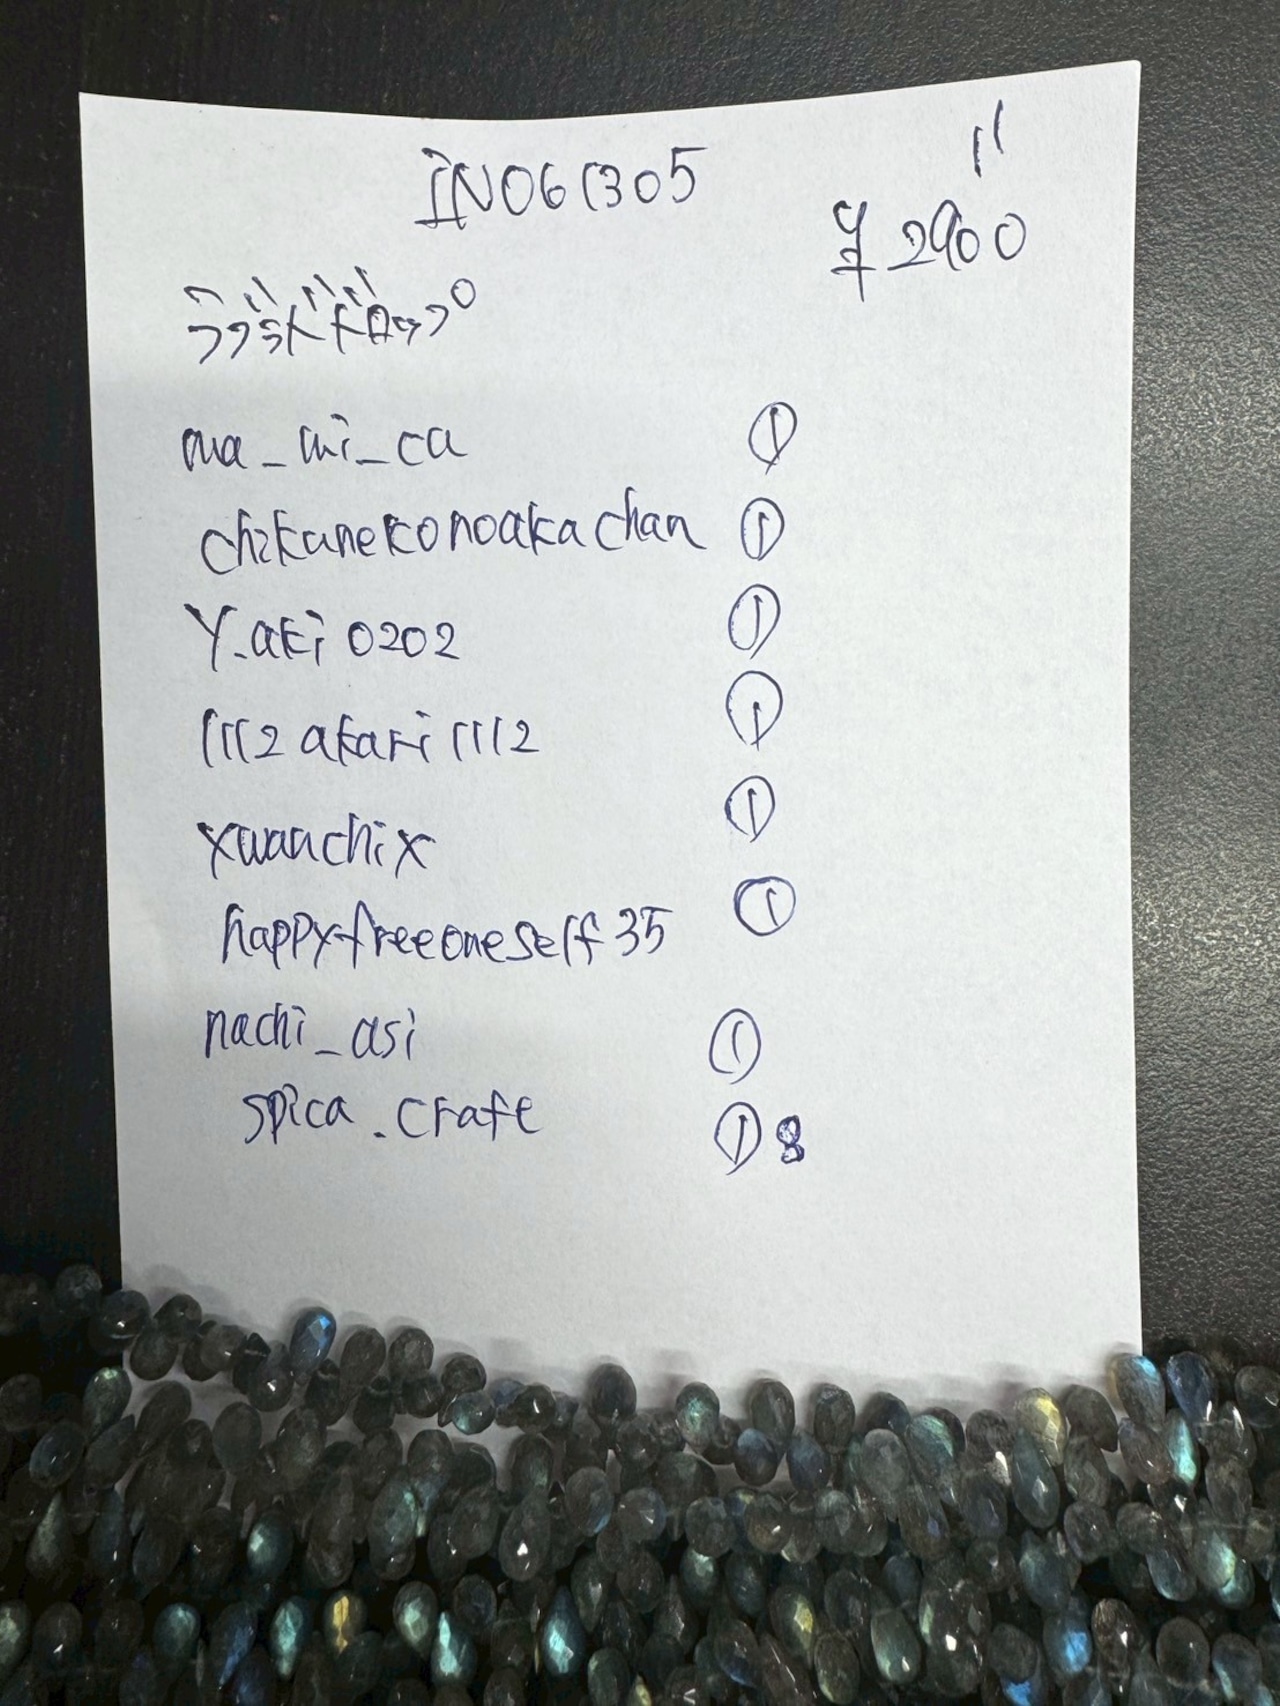 IN061305
¥2900
ラブラドドロップ
ma_mi_ca ①
chikanekonoakachan ①
Y.aki0202 ①
1112akari1112 ①
xwanchix ①
happyfreeoneself35 ①
nachi_asi ①
spica.craft ① 8